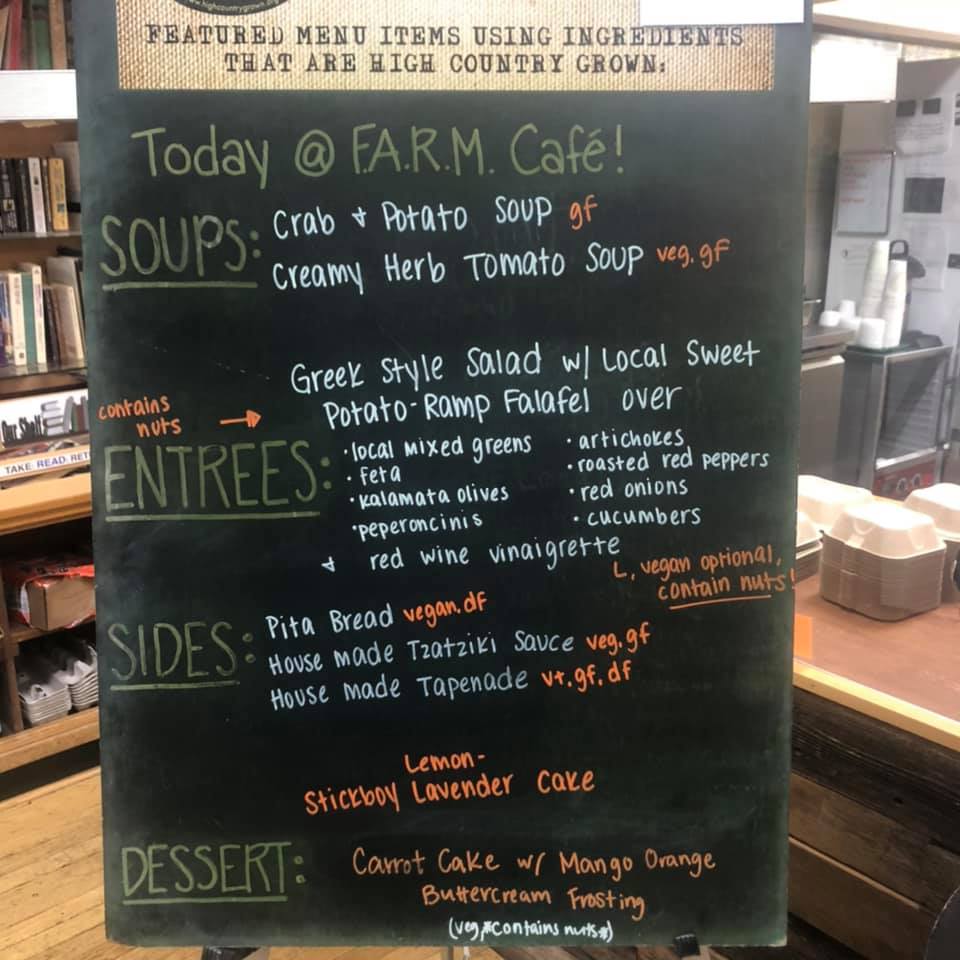 www.highcountrygrown.org
FEATURED MENU ITEMS USING INGREDIENTS
THAT ARE HIGH COUNTRY GROWN:
Today @ F.A.R.M. Café!
SOUPS:
Crab & Potato Soup gf
Creamy Herb Tomato Soup veg. gf
contains
nuts
ENTREES:
Greek Style Salad w/ Local Sweet
Potato-Ramp Falafel over
• local mixed greens
• feta
• kalamata olives
• peperoncinis
• artichokes
• roasted red peppers
• red onions
• cucumbers
& red wine vinaigrette
L, vegan optional,
contain nuts!
SIDES:
Pita Bread vegan.df
House made Tzatziki Sauce veg.gf
House made Tapenade vt.gf.df
Lemon-
Stickboy Lavender Cake
DESSERT:
Carrot Cake w/ Mango Orange
Buttercream Frosting
(veg,*contains nuts*)
Our Shelf
TAKE READ RET